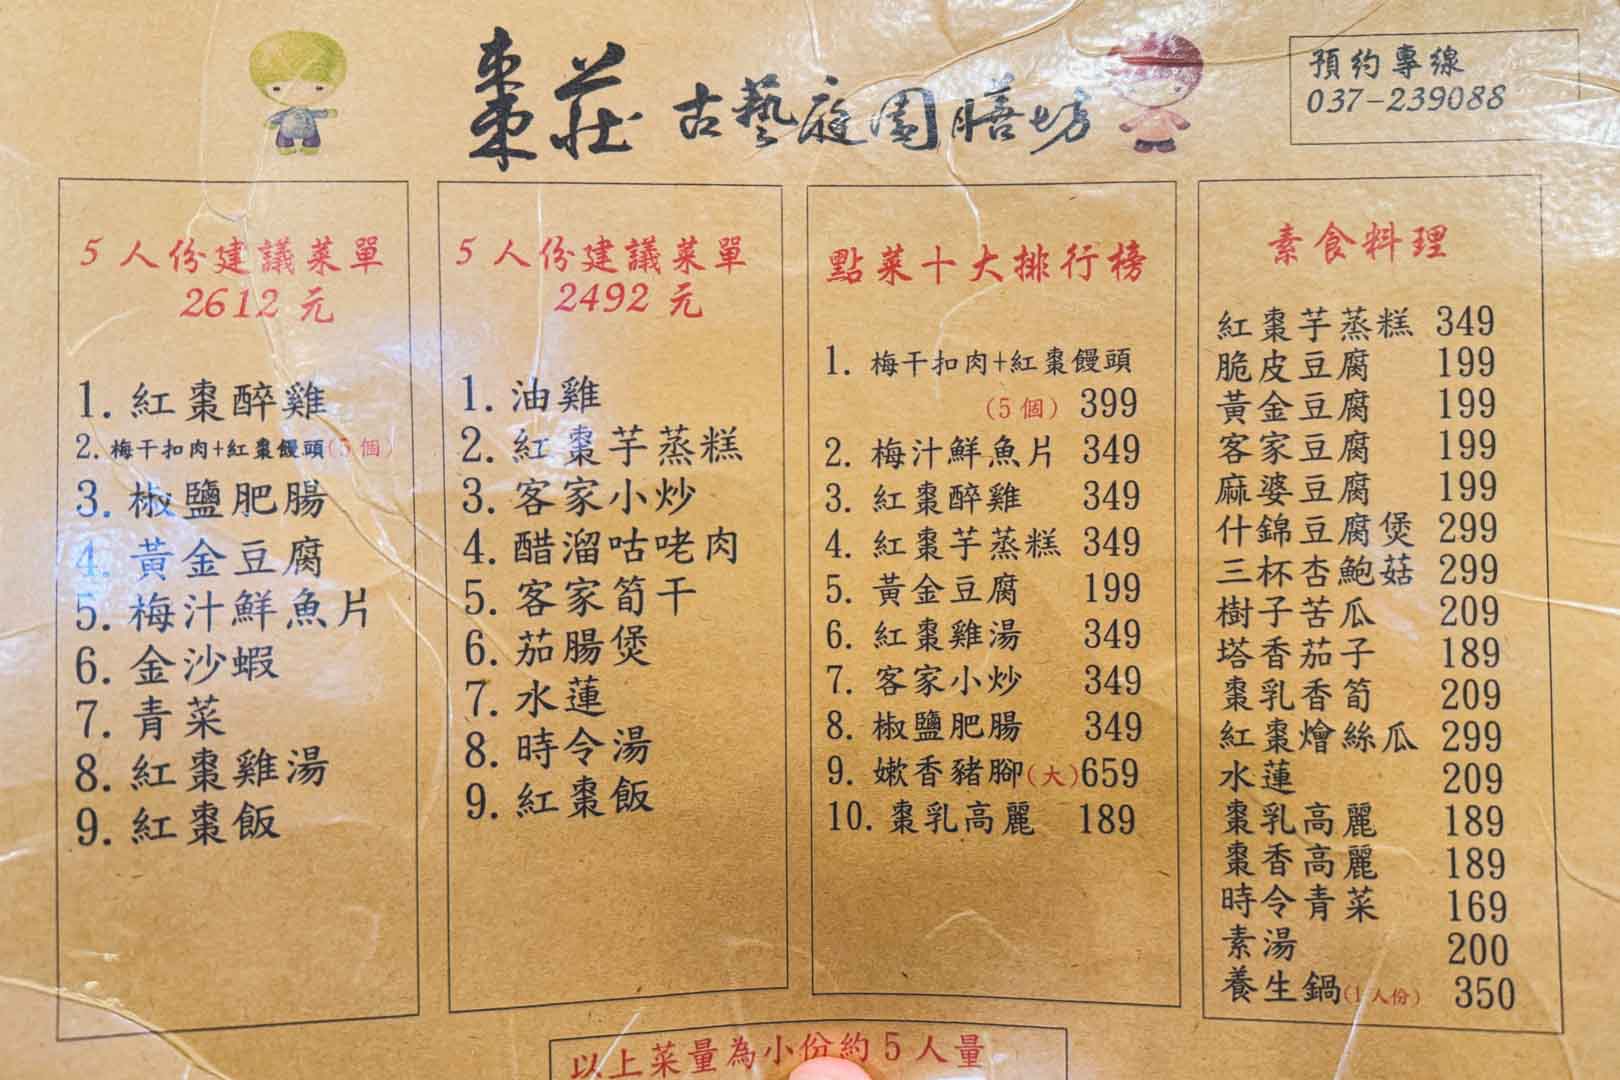 棗莊 古藝庭園膳坊
預約專線
037-239088
5人份建議菜單
2612元
1. 紅棗醉雞
2. 梅干扣肉+紅棗饅頭(5個)
3. 椒鹽肥腸
4. 黃金豆腐
5. 梅汁鮮魚片
6. 金沙蝦
7. 青菜
8. 紅棗雞湯
9. 紅棗飯
5人份建議菜單
2492元
1. 油雞
2. 紅棗芋蒸糕
3. 客家小炒
4. 醋溜咕咾肉
5. 客家筍干
6. 茄腸煲
7. 水蓮
8. 時令湯
9. 紅棗飯
點菜十大排行榜
1. 梅干扣肉+紅棗饅頭
(5個) 399
2. 梅汁鮮魚片 349
3. 紅棗醉雞 349
4. 紅棗芋蒸糕 349
5. 黃金豆腐 199
6. 紅棗雞湯 349
7. 客家小炒 349
8. 椒鹽肥腸 349
9. 嫩香豬腳(大)659
10. 棗乳高麗 189
素食料理
紅棗芋蒸糕 349
脆皮豆腐 199
黃金豆腐 199
客家豆腐 199
麻婆豆腐 199
什錦豆腐煲 299
三杯杏鮑菇 299
樹子苦瓜 209
塔香茄子 189
棗乳香筍 209
紅棗燴絲瓜 299
水蓮 209
棗乳高麗 189
棗香高麗 189
時令青菜 169
素湯 200
養生鍋(1人份) 350
以上菜量為小份約5人量